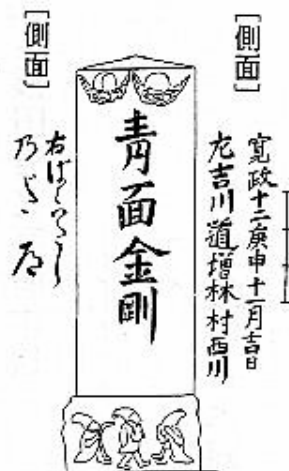 ［側面］
寛政十二庚申十一月吉日
左吉川道増林村西川
青面金剛
［側面］
右ば